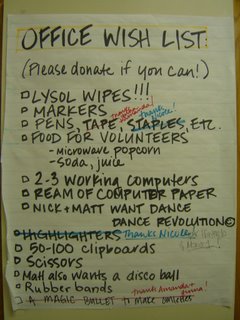 OFFICE WISH LIST:
(Please donate if you can!)
LYSOL WIPES!!!
MARKERS thanks Amanda!
PENS, TAPE, STAPLES, ETC. thank you
FOOD FOR VOLUNTEERS
- microwave popcorn
- soda, juice
2-3 working computers
REAM OF COMPUTER PAPER
NICK + MATT WANT DANCE
DANCE REVOLUTION©
HIGHLIGHTERS Thanks Nicole
50-100 clipboards
Scissors
Matt also wants a disco ball
Rubber bands Thanks Amanda +
A MAGIC BULLET to make smoothies